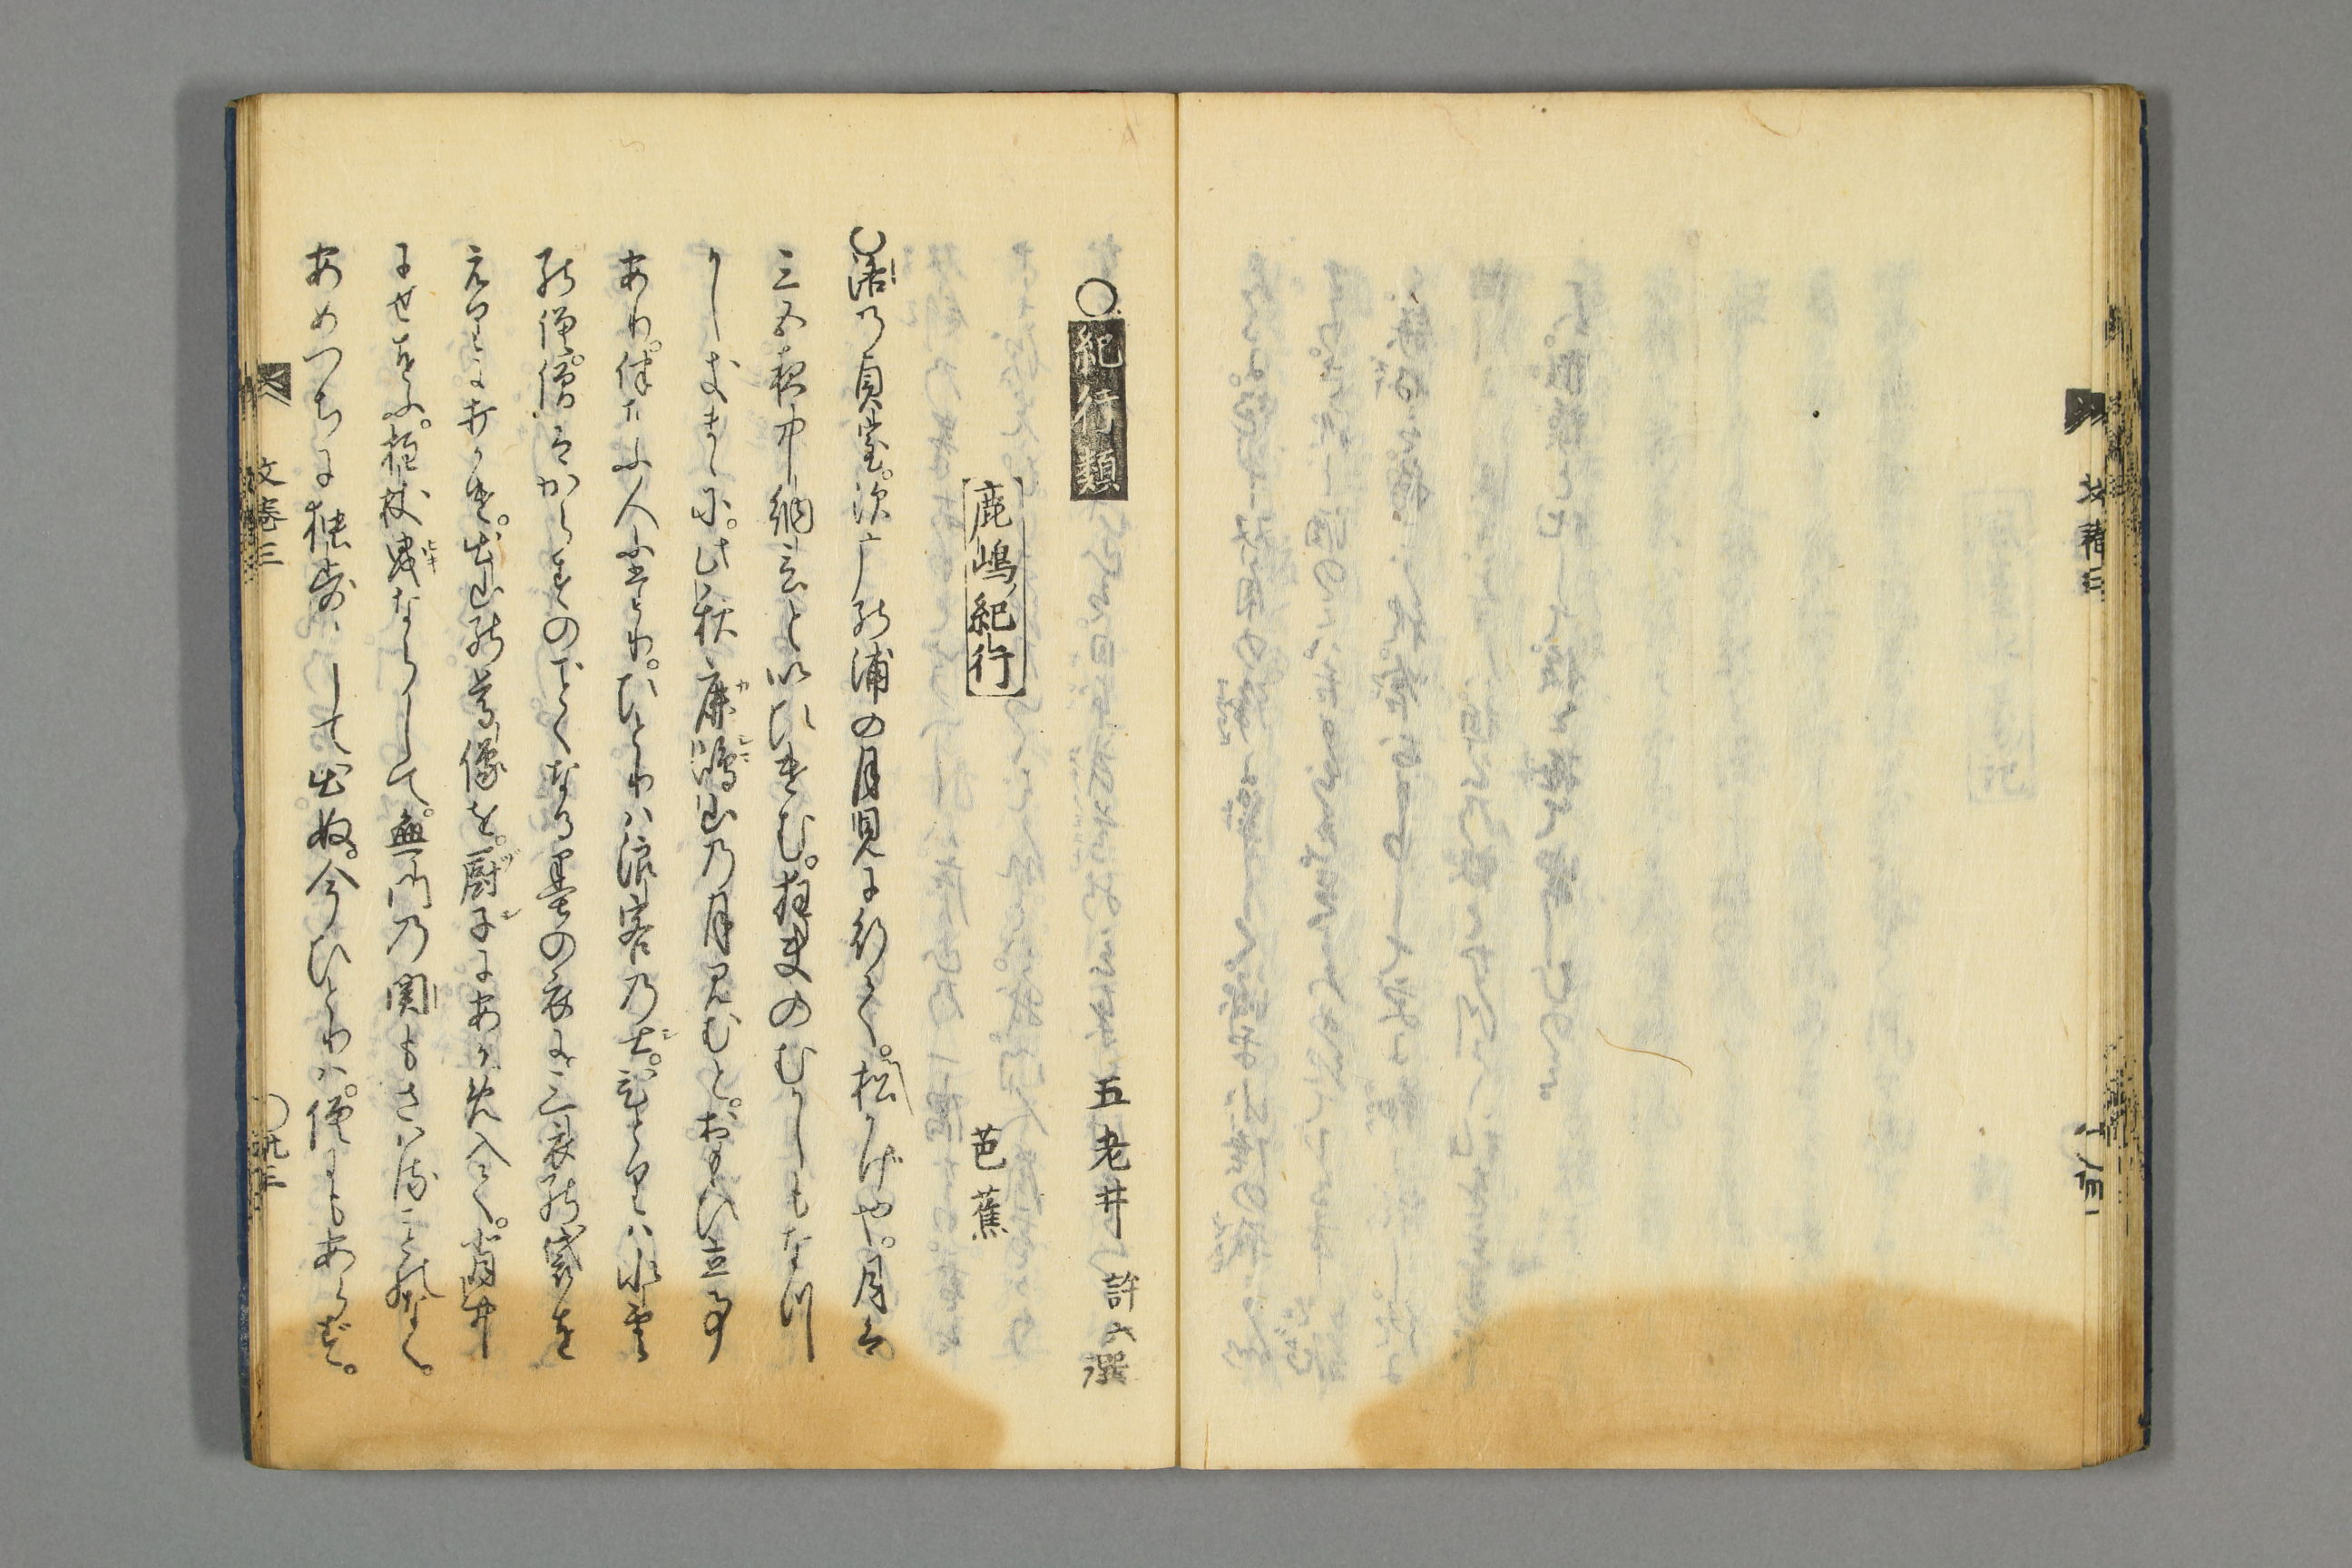 ○紀行類
五老井 許六選
鹿嶋紀行
芭蕉
○洛乃貞室。須广の浦の月見に行て。松かげや。月は
三五夜中納言と以ひけむ。狂夫のむかしもなつ
かしきまゝに。此秋鹿嶋山乃月見むと。おもひ立事
あり。伴なふ人ふたり。ひとりハ浪客乃士。ひとりハ水雲
の僧。僧はからすのごとくなる墨の衣に三衣の袋を
えりに打かけ。出山の尊像を。厨子にあがめ入て。背中
にせをふ。拄杖曳ならして。無門乃関もさハるものなく。
あめつちに独歩して出ぬ。今ひとりハ。僧にもあらず。
文巻三